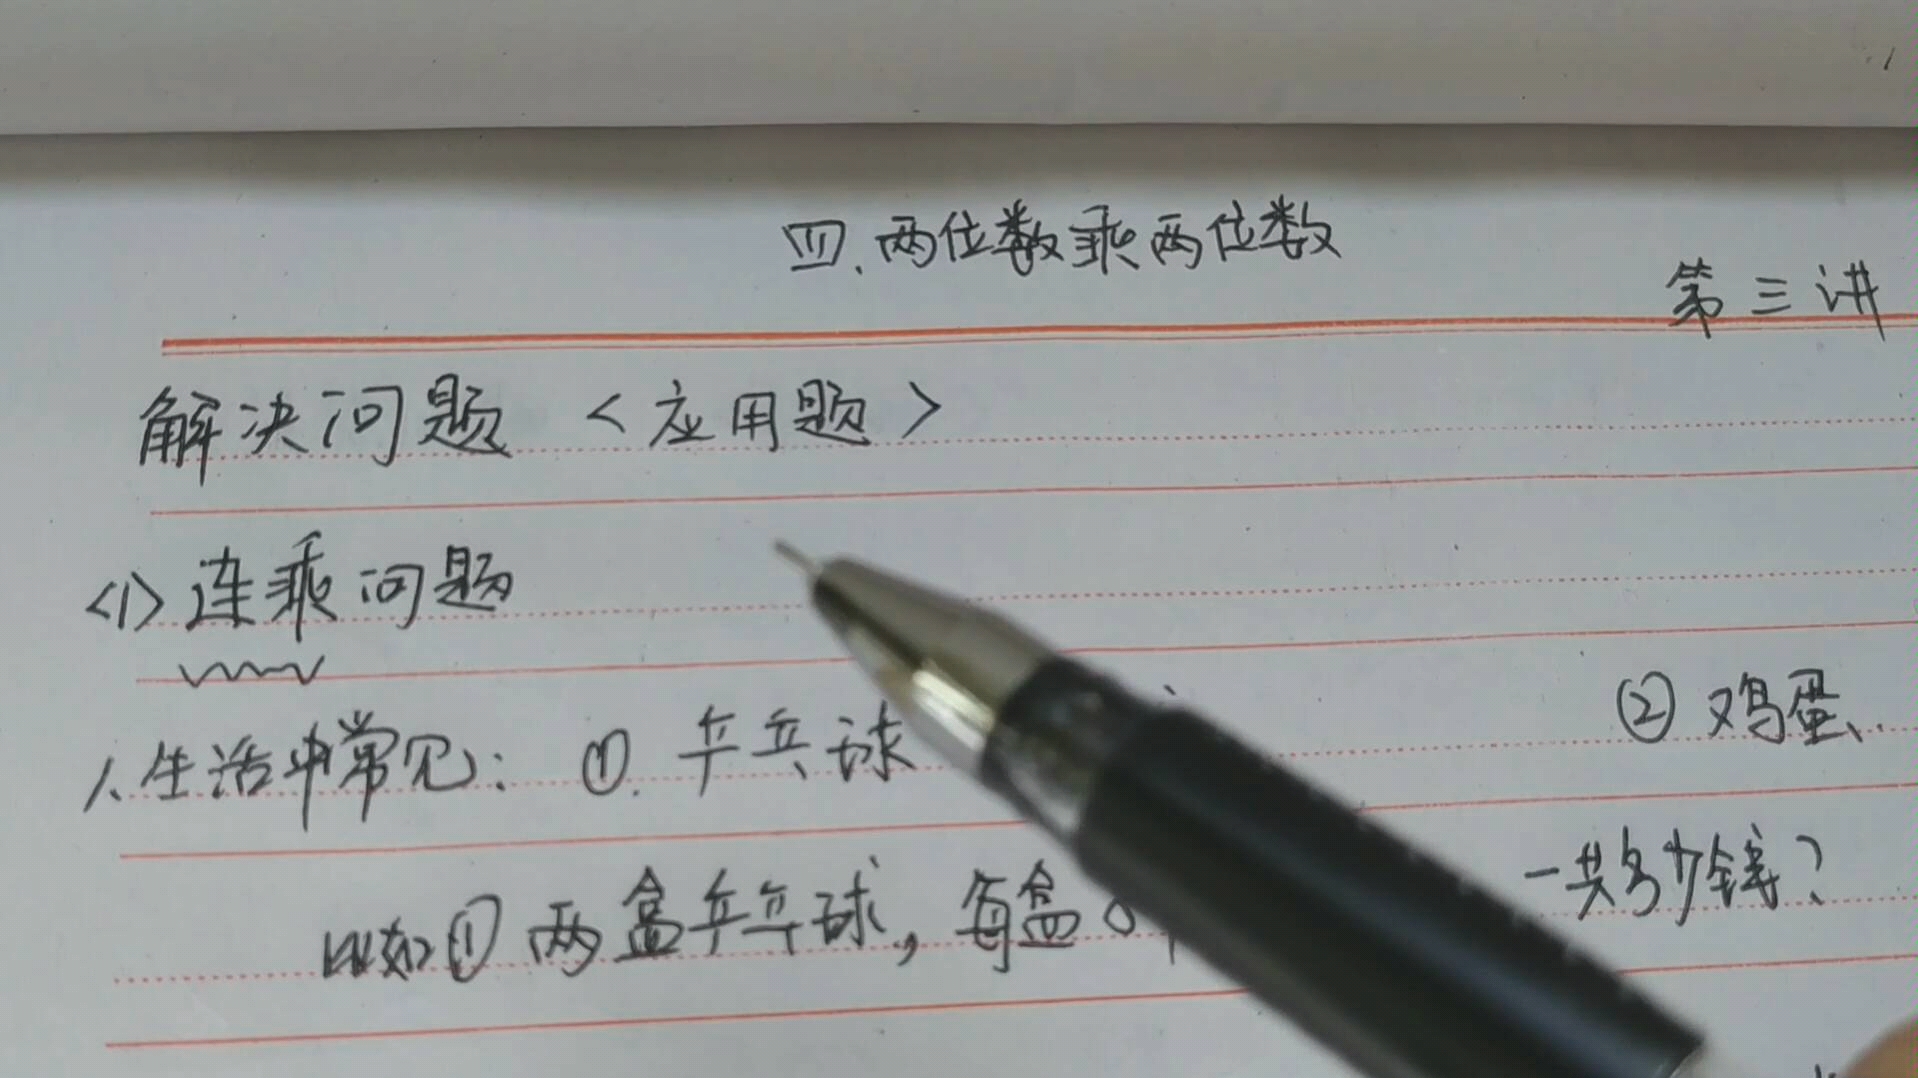 四.两位数乘两位数
第三讲
解决问题 <应用题>
<1>连乘问题
1、生活中常见: ①. 乒乓球 ②鸡蛋、
比如①两盒乒乓球,每盒 一共多少钱?